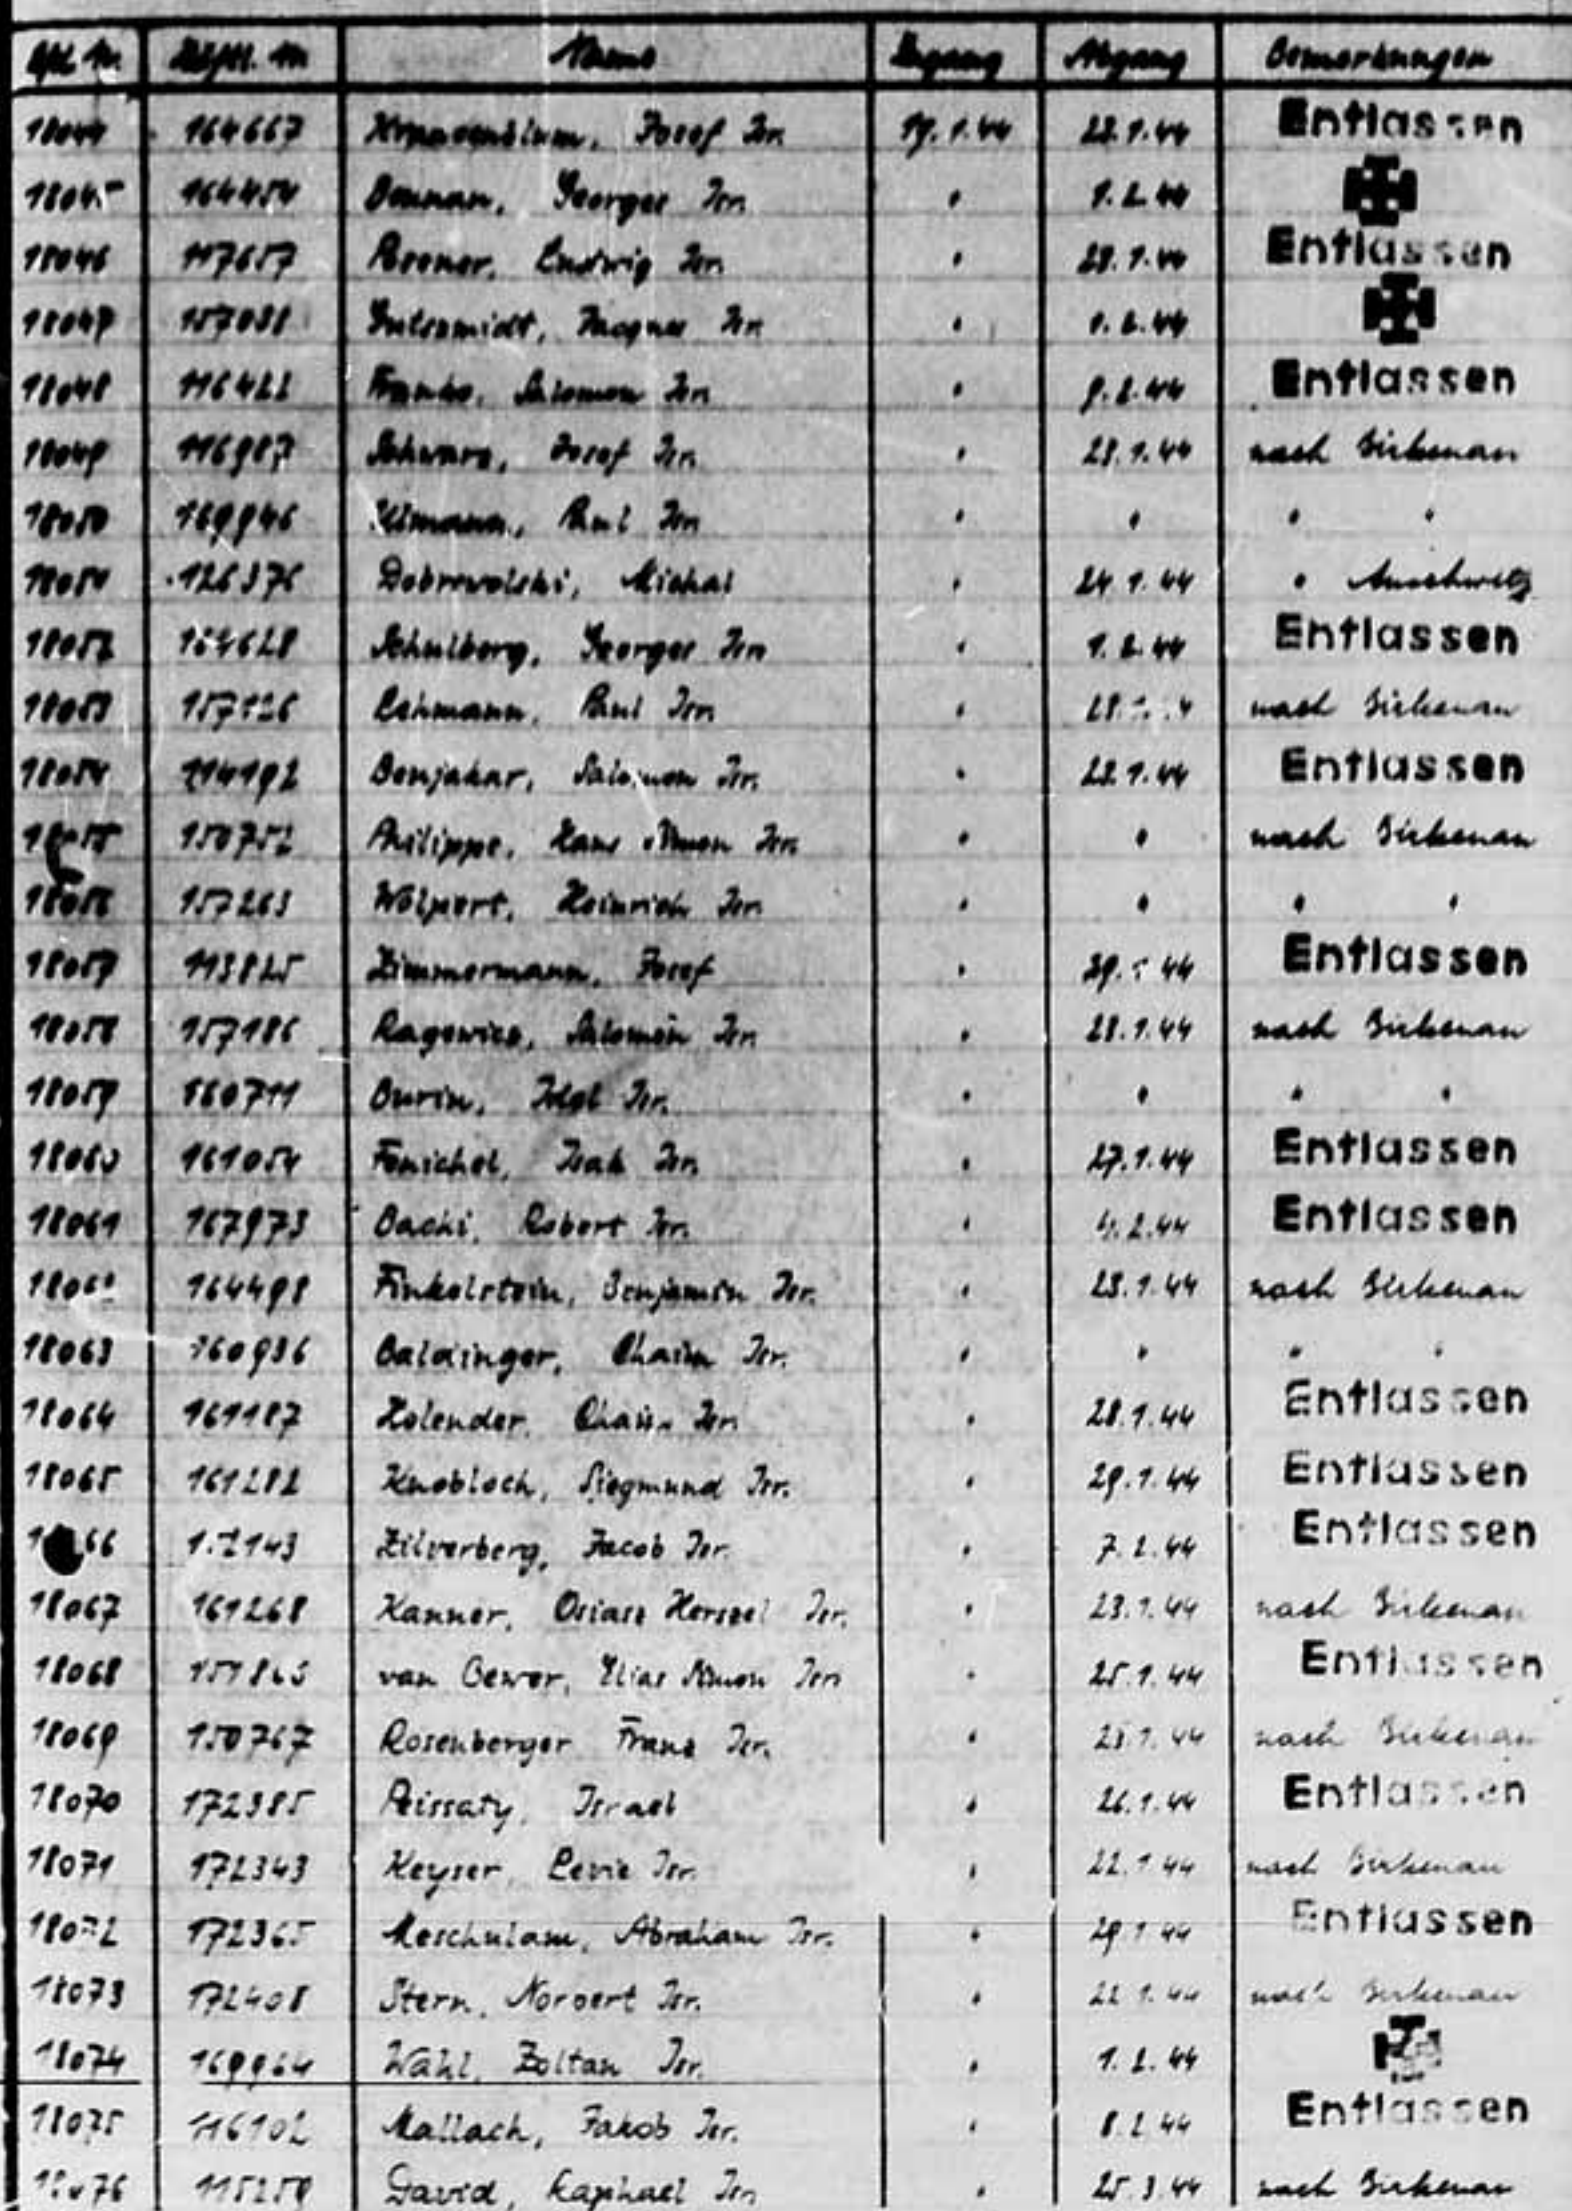 Lfd. Nr. Häftl. Nr. Name Zugang Abgang Bemerkungen
18044 164667 Josef Isr. 19.1.44 28.1.44 Entlassen
18045 164454 Georges Isr. " 1.2.44
18046 117657 Ludwig Isr. " 28.1.44 Entlassen
18047 157088 Isr. " 1.2.44
18048 116422 Salomon Isr. " 9.2.44 Entlassen
18049 116987 Schwarz, Josef Isr. " 28.1.44 nach Birkenau
18050 169946 Paul Isr. " " " "
18051 126376 Dobrowolski, Michal " 24.1.44 " Auschwitz
18052 154628 Schulberg, Georges Isr. " 1.2.44 Entlassen
18053 157126 Lehmann, Paul Isr. " nach Birkenau
18054 114192 Benjakar, Salomon Isr. " 28.1.44 Entlassen
18055 150752 Philippe, Hans Simon Isr. " " nach Birkenau
18056 157263 Wolpert, Heinrich Isr. " " " "
18057 113825 Zimmermann, Josef " 44 Entlassen
18058 157186 Ragewicz, Salomon Isr. " 28.1.44 nach Birkenau
18059 160711 Burin, Isr. " " " "
18060 161054 Fenichel, Isak Isr. " 27.1.44 Entlassen
18061 167973 Bachi, Robert Isr. " 4.2.44 Entlassen
18062 164498 Finkelstein, Benjamin Isr. " 28.1.44 nach Birkenau
18063 160936 Baldinger, Chaim Isr. " " " "
18064 161187 Holender, Chaim Isr. " 28.1.44 Entlassen
18065 161282 Knobloch, Siegmund Isr. " 29.1.44 Entlassen
66 Zilverberg, Jacob Isr. " 7.2.44 Entlassen
18067 161268 Kanner, Osiasz Herszel Isr. " 23.1.44 nach Birkenau
18068 151863 van Gewer, Elias Simon Isr. " 25.1.44 Entlassen
18069 150767 Rosenberger Franz Isr. " 44 nach Birkenau
18070 172385 Peissaty, Israel " 26.1.44 Entlassen
18071 172343 Keyser, Levie Isr. " 22.1.44 nach Birkenau
18072 172365 Meschulam, Abraham Isr. " 29.1.44 Entlassen
18073 172408 Stern, Norbert Isr. " 22.1.44 nach Birkenau
18074 169964 Wahl, Zoltan Isr. " 1.2.44
18075 116102 Mallach, Jakob Isr. " 8.2.44 Entlassen
18076 115259 David, Raphael Isr. " 25.3.44 nach Birkenau